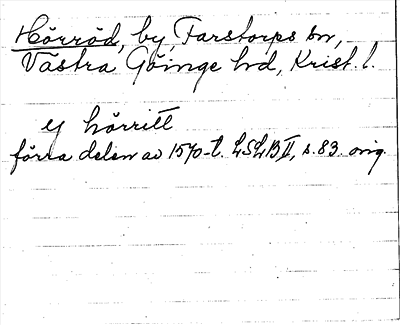 Hörröd, by, Farstorps sn,
Västra Göinge hd, Krist. l.
ij hörritt
förra delen av 1570-t. LSLB II, s. 83. orig.